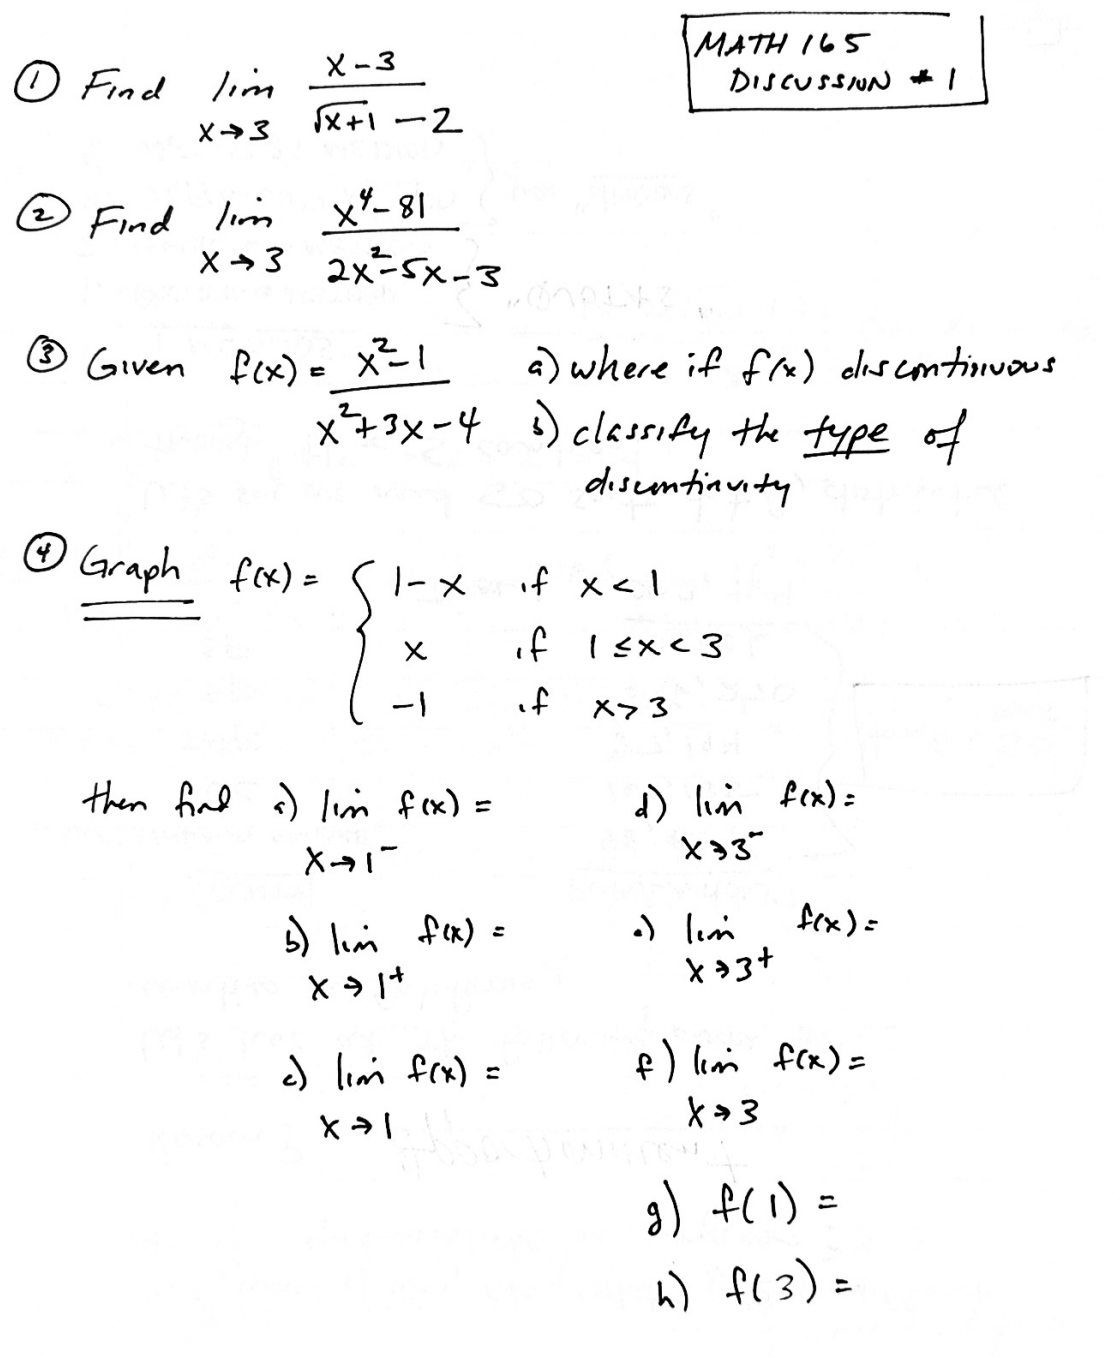 MATH 165
DISCUSSION #1
① Find lim x→3 (x-3)/(√(x+1) - 2)
② Find lim x→3 (x⁴-81)/(2x²-5x-3)
③ Given f(x) = (x²-1)/(x²+3x-4) a) where if f(x) discontinuous
b) classify the type of
discontinuity
④ Graph f(x) = { 1-x if x<1
x if 1≤x<3
-1 if x>3
then find a) lim x→1⁻ f(x) =
b) lim x→1⁺ f(x) =
c) lim x→1 f(x) =
d) lim x→3⁻ f(x) =
e) lim x→3⁺ f(x) =
f) lim x→3 f(x) =
g) f(1) =
h) f(3) =